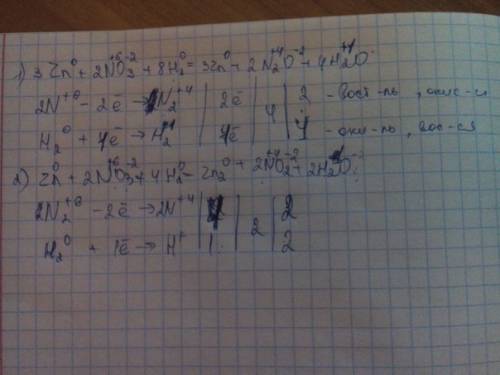 1) 3 Zn⁰ + 2NO₃ + 8H₂⁰ = 3Zn⁰ + 2 N₂O⁻² + 4H₂O
2N⁺⁶ − 2ē → N₂⁺⁴ | 2ē | 4 | 2 - вост-ль, окис-я
H₂⁰ + 4ē → H₂⁺¹ | 4ē | 4 - окис-ль, вос-ся
2) Zn⁰ + 2NO₃ + 4H₂⁰ − Zn₂⁰ + 2NO₂⁻² + 2H₂O
2N₂⁺⁶ − 2ē → 2N⁺⁴ | 2 | 2
H₂⁰ + 1ē → H⁺ | 1 | 2